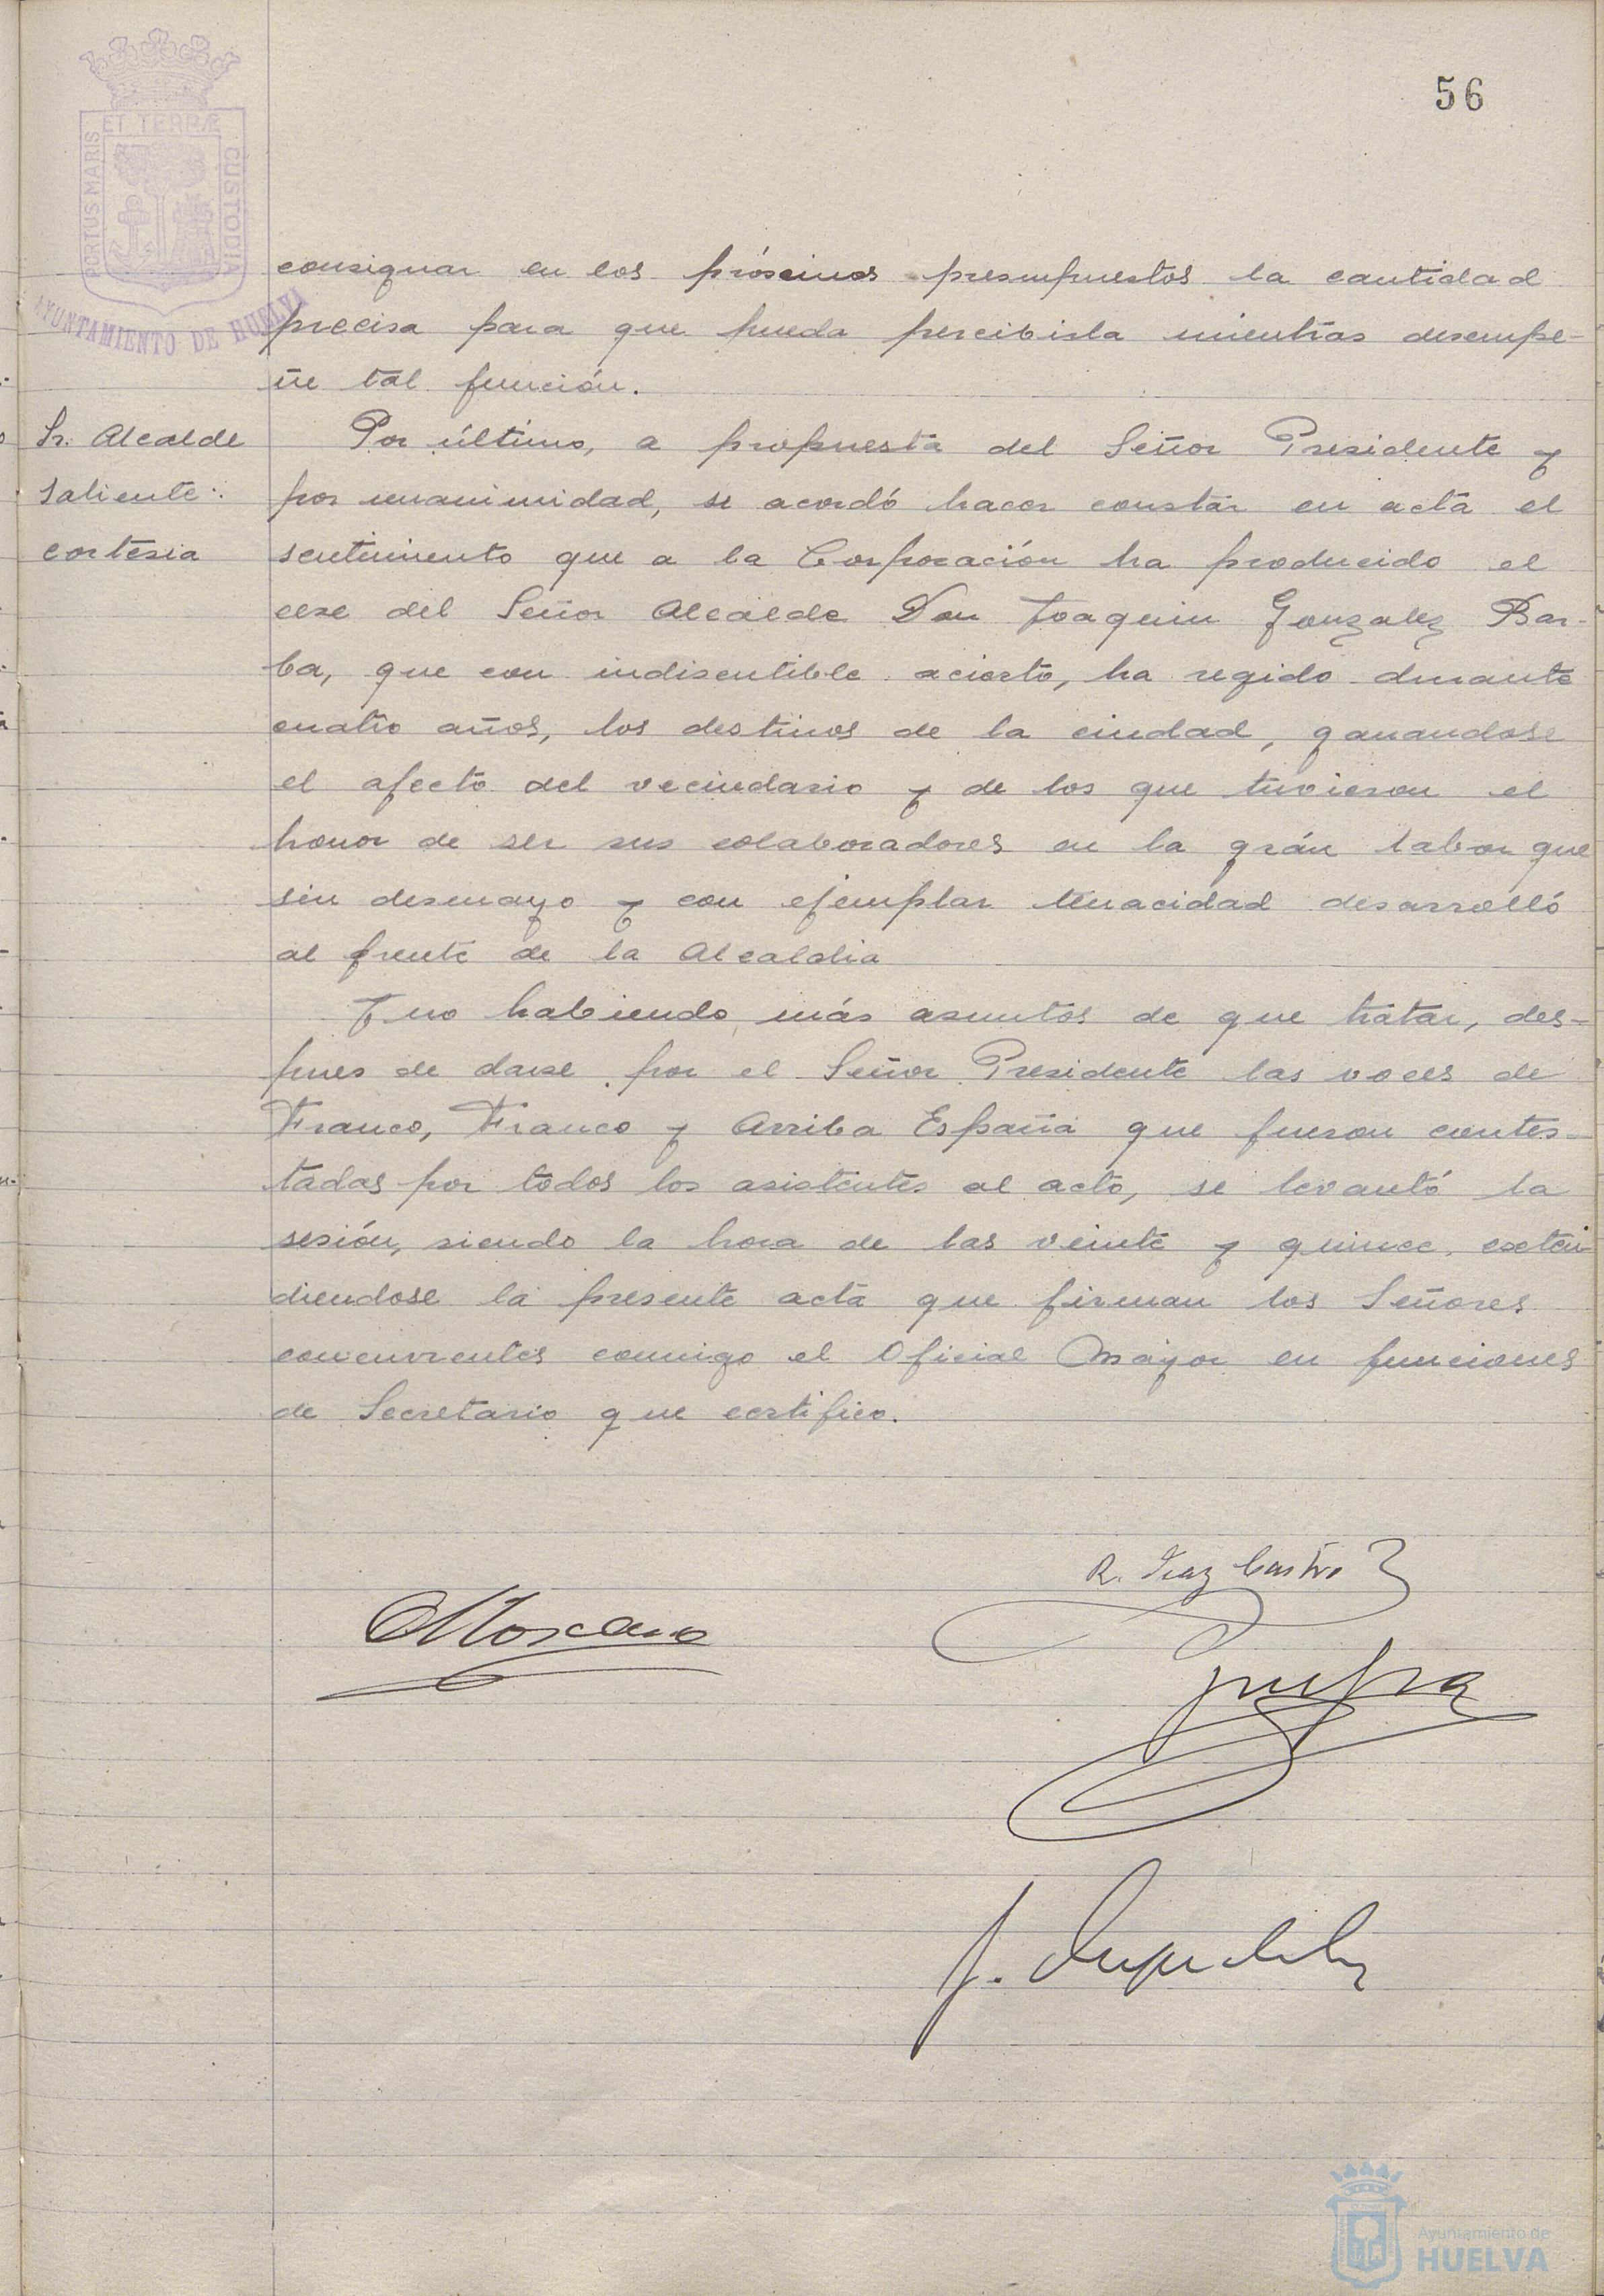 56
PORTUS MARIS ET TERRÆ CUSTODIA
AYUNTAMIENTO DE HUELVA
consignar en los próximos presupuestos la cantidad
precisa para que pueda percibirla mientras desempe-
ñe tal función.
Sr. Alcalde
saliente:
cortesia
Por último, a propuesta del Señor Presidente y
por unanimidad, se acordó hacer constar en acta el
sentimiento que a la Corporación ha producido el
cese del Señor Alcalde Don Joaquin Gonzalez Bar-
ba, que con indiscutible acierto, ha regido durante
cuatro años, los destinos de la ciudad, ganandose
el afecto del vecindario y de los que tuvieron el
honor de ser sus colaboradores en la grán labor que
sin desmayo y con ejemplar tenacidad desarrolló
al frente de la Alcaldia
Y no habiendo más asuntos de que tratar, des-
pues de darse por el Señor Presidente las voces de
Franco, Franco y Arriba España que fueron contes-
tadas por todos los asistentes al acto, se levantó la
sesión, siendo la hora de las veinte y quince, exten
diendose la presente acta que firman los Señores
concurrentes conmigo el Oficial Mayor en funciones
de Secretario que certifico.
R. Diaz Castro
Ayuntamiento de
HUELVA